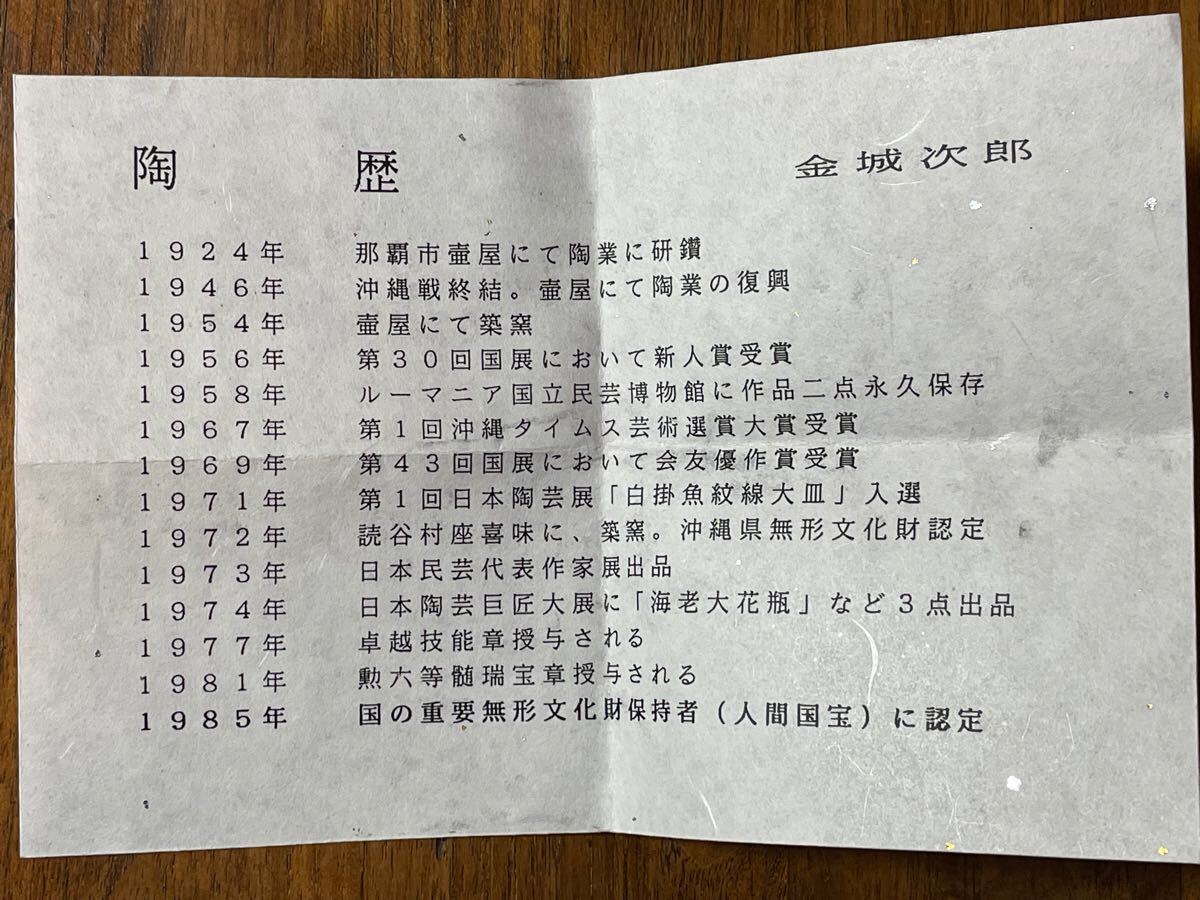 陶歴 金城次郎
1924年 那覇市壷屋にて陶業に研鑽
1946年 沖縄戦終結。壷屋にて陶業の復興
1954年 壷屋にて築窯
1956年 第30回国展において新人賞受賞
1958年 ルーマニア国立民芸博物館に作品二点永久保存
1967年 第1回沖縄タイムス芸術選賞大賞受賞
1969年 第43回国展において会友優作賞受賞
1971年 第1回日本陶芸展「白掛魚紋線大皿」入選
1972年 読谷村座喜味に、築窯。沖縄県無形文化財認定
1973年 日本民芸代表作家展出品
1974年 日本陶芸巨匠大展に「海老大花瓶」など3点出品
1977年 卓越技能章授与される
1981年 勲六等髄瑞宝章授与される
1985年 国の重要無形文化財保持者(人間国宝)に認定